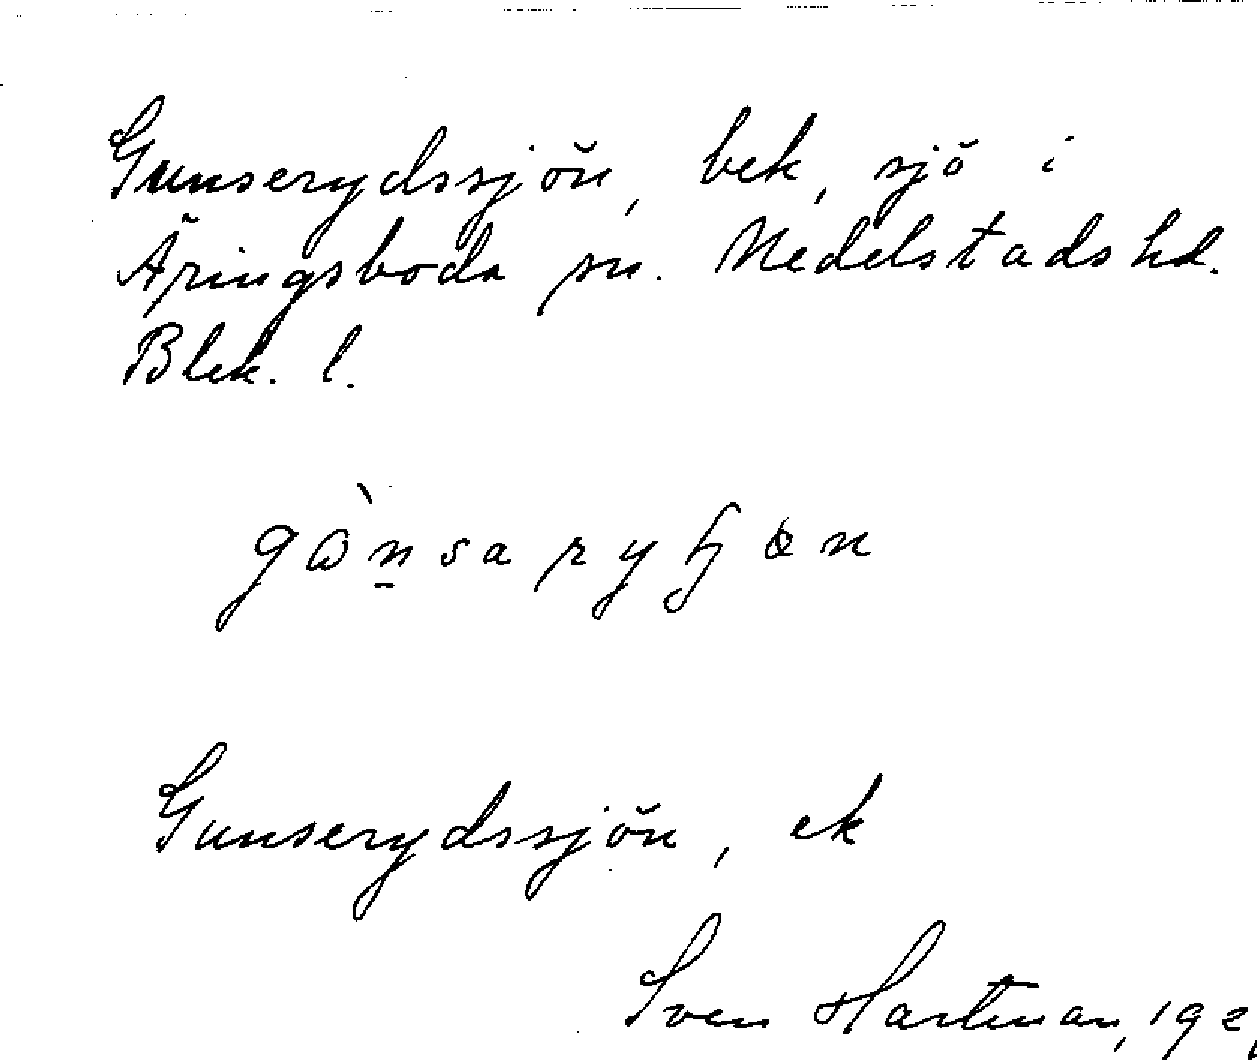 Gunserydssjön, bek, sjö i
Åringsboda sn. Medelstads hd.
Blek. l.
Gunserydssjön, ek
Sven Hartman, 192